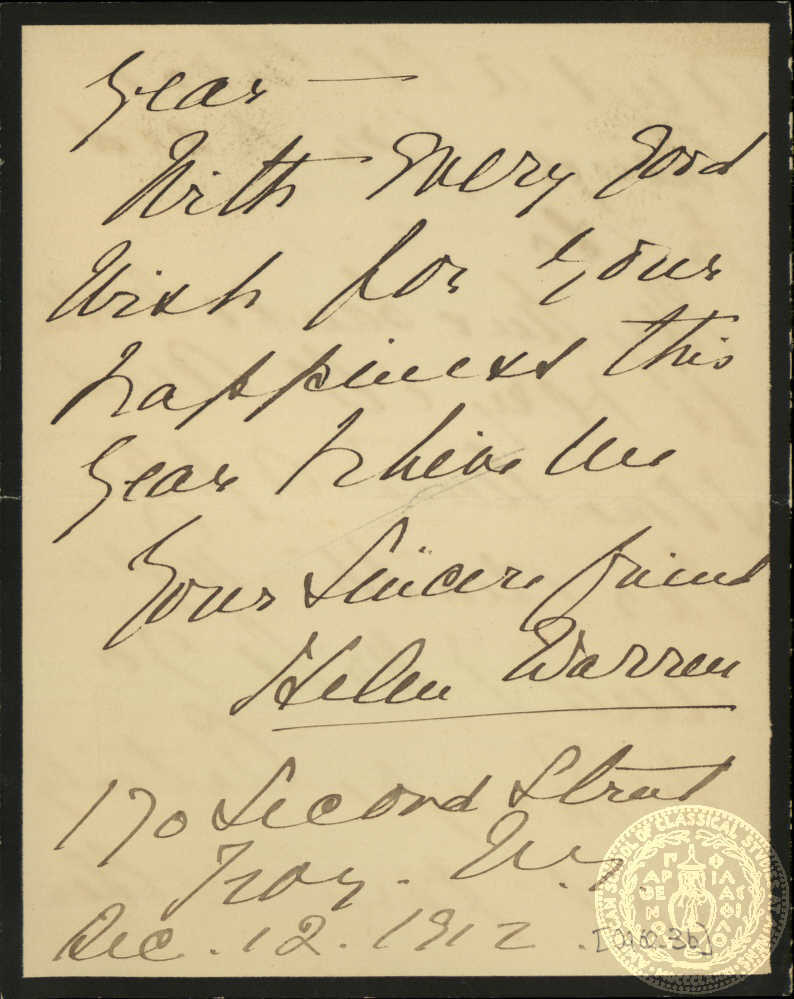 year —
With every good
wish for your
happiness this
year believe me
Your sincere friend
Helen Warren
170 Second Street
Troy. N.Y.
Dec. 12. 1912.
ΠΑΡΘΕΝ ΦΙΛΑΣ